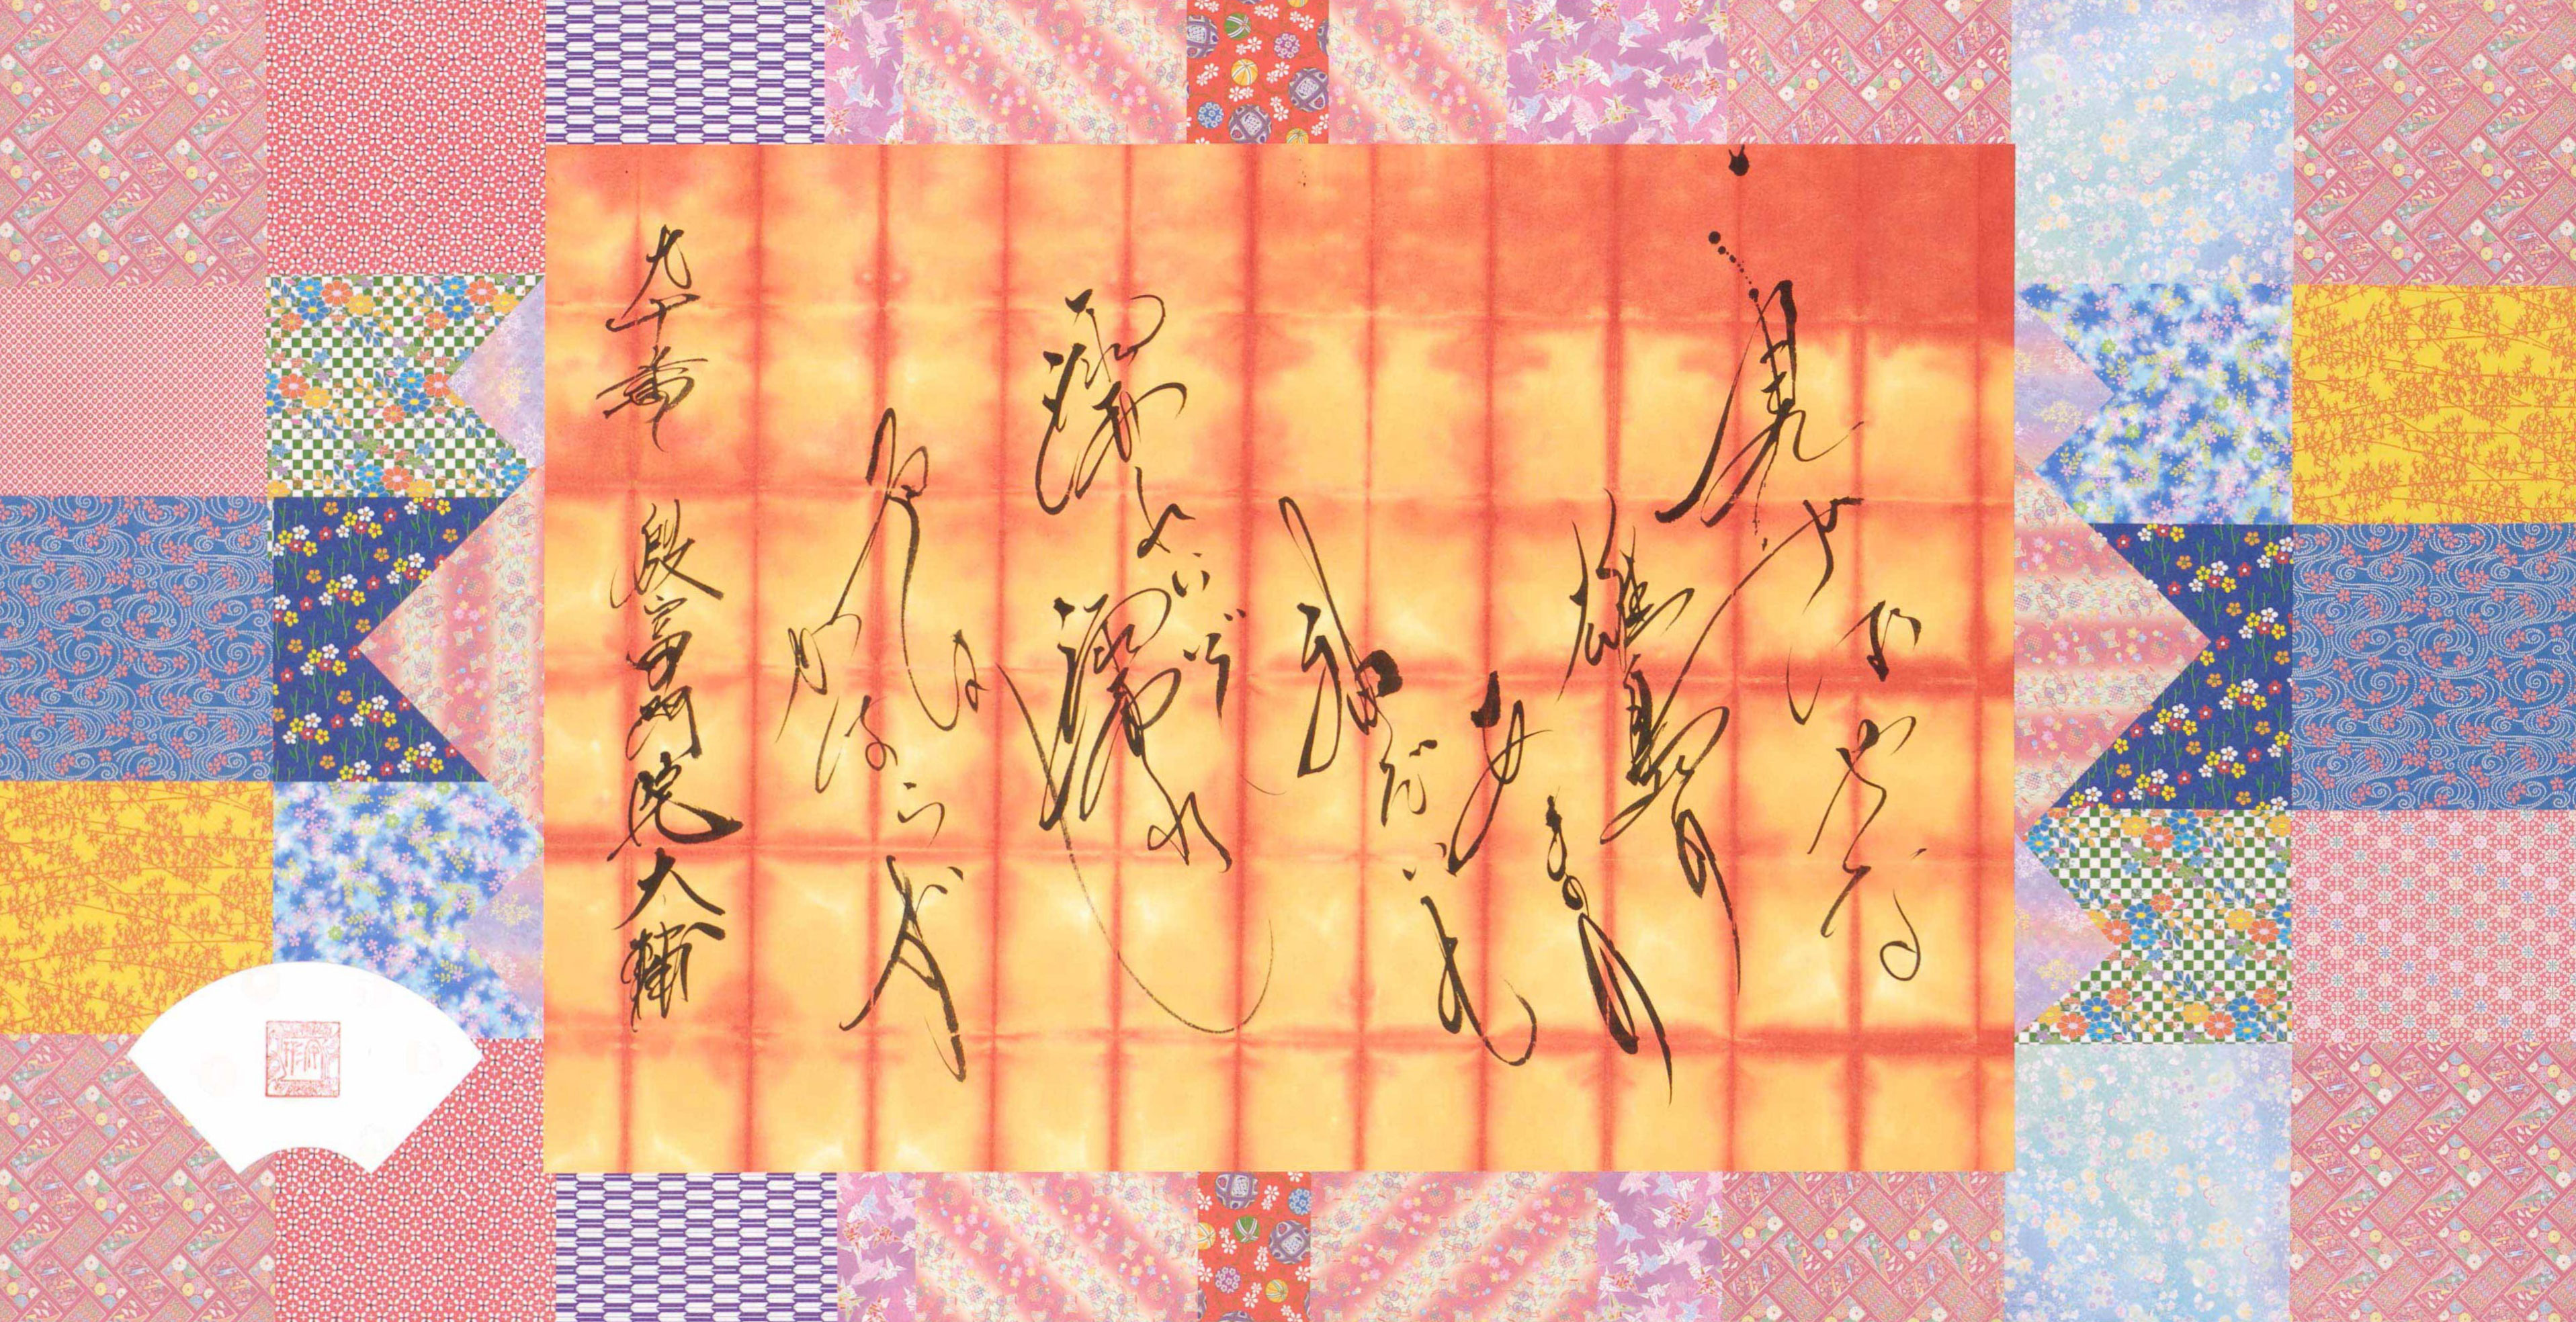 見せばやな
雄島の
あまの
袖だにも
濡れにぞ
濡れし
色は
かはらず
九十番 殷富門院大輔